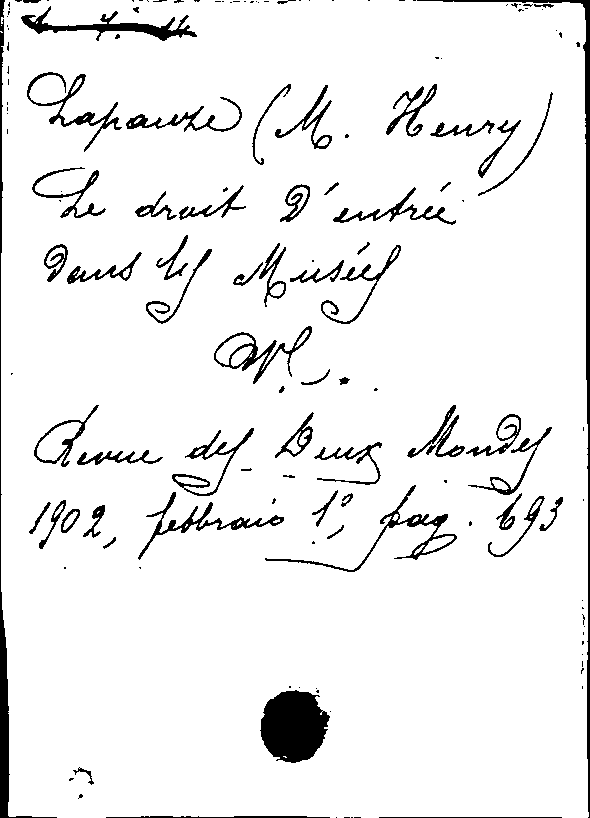 Lapauze (M. Henry)
Le droit d'entrée
dans les Musées
Revue des Deux Mondes
1902, febbraio 1º, pag. 693